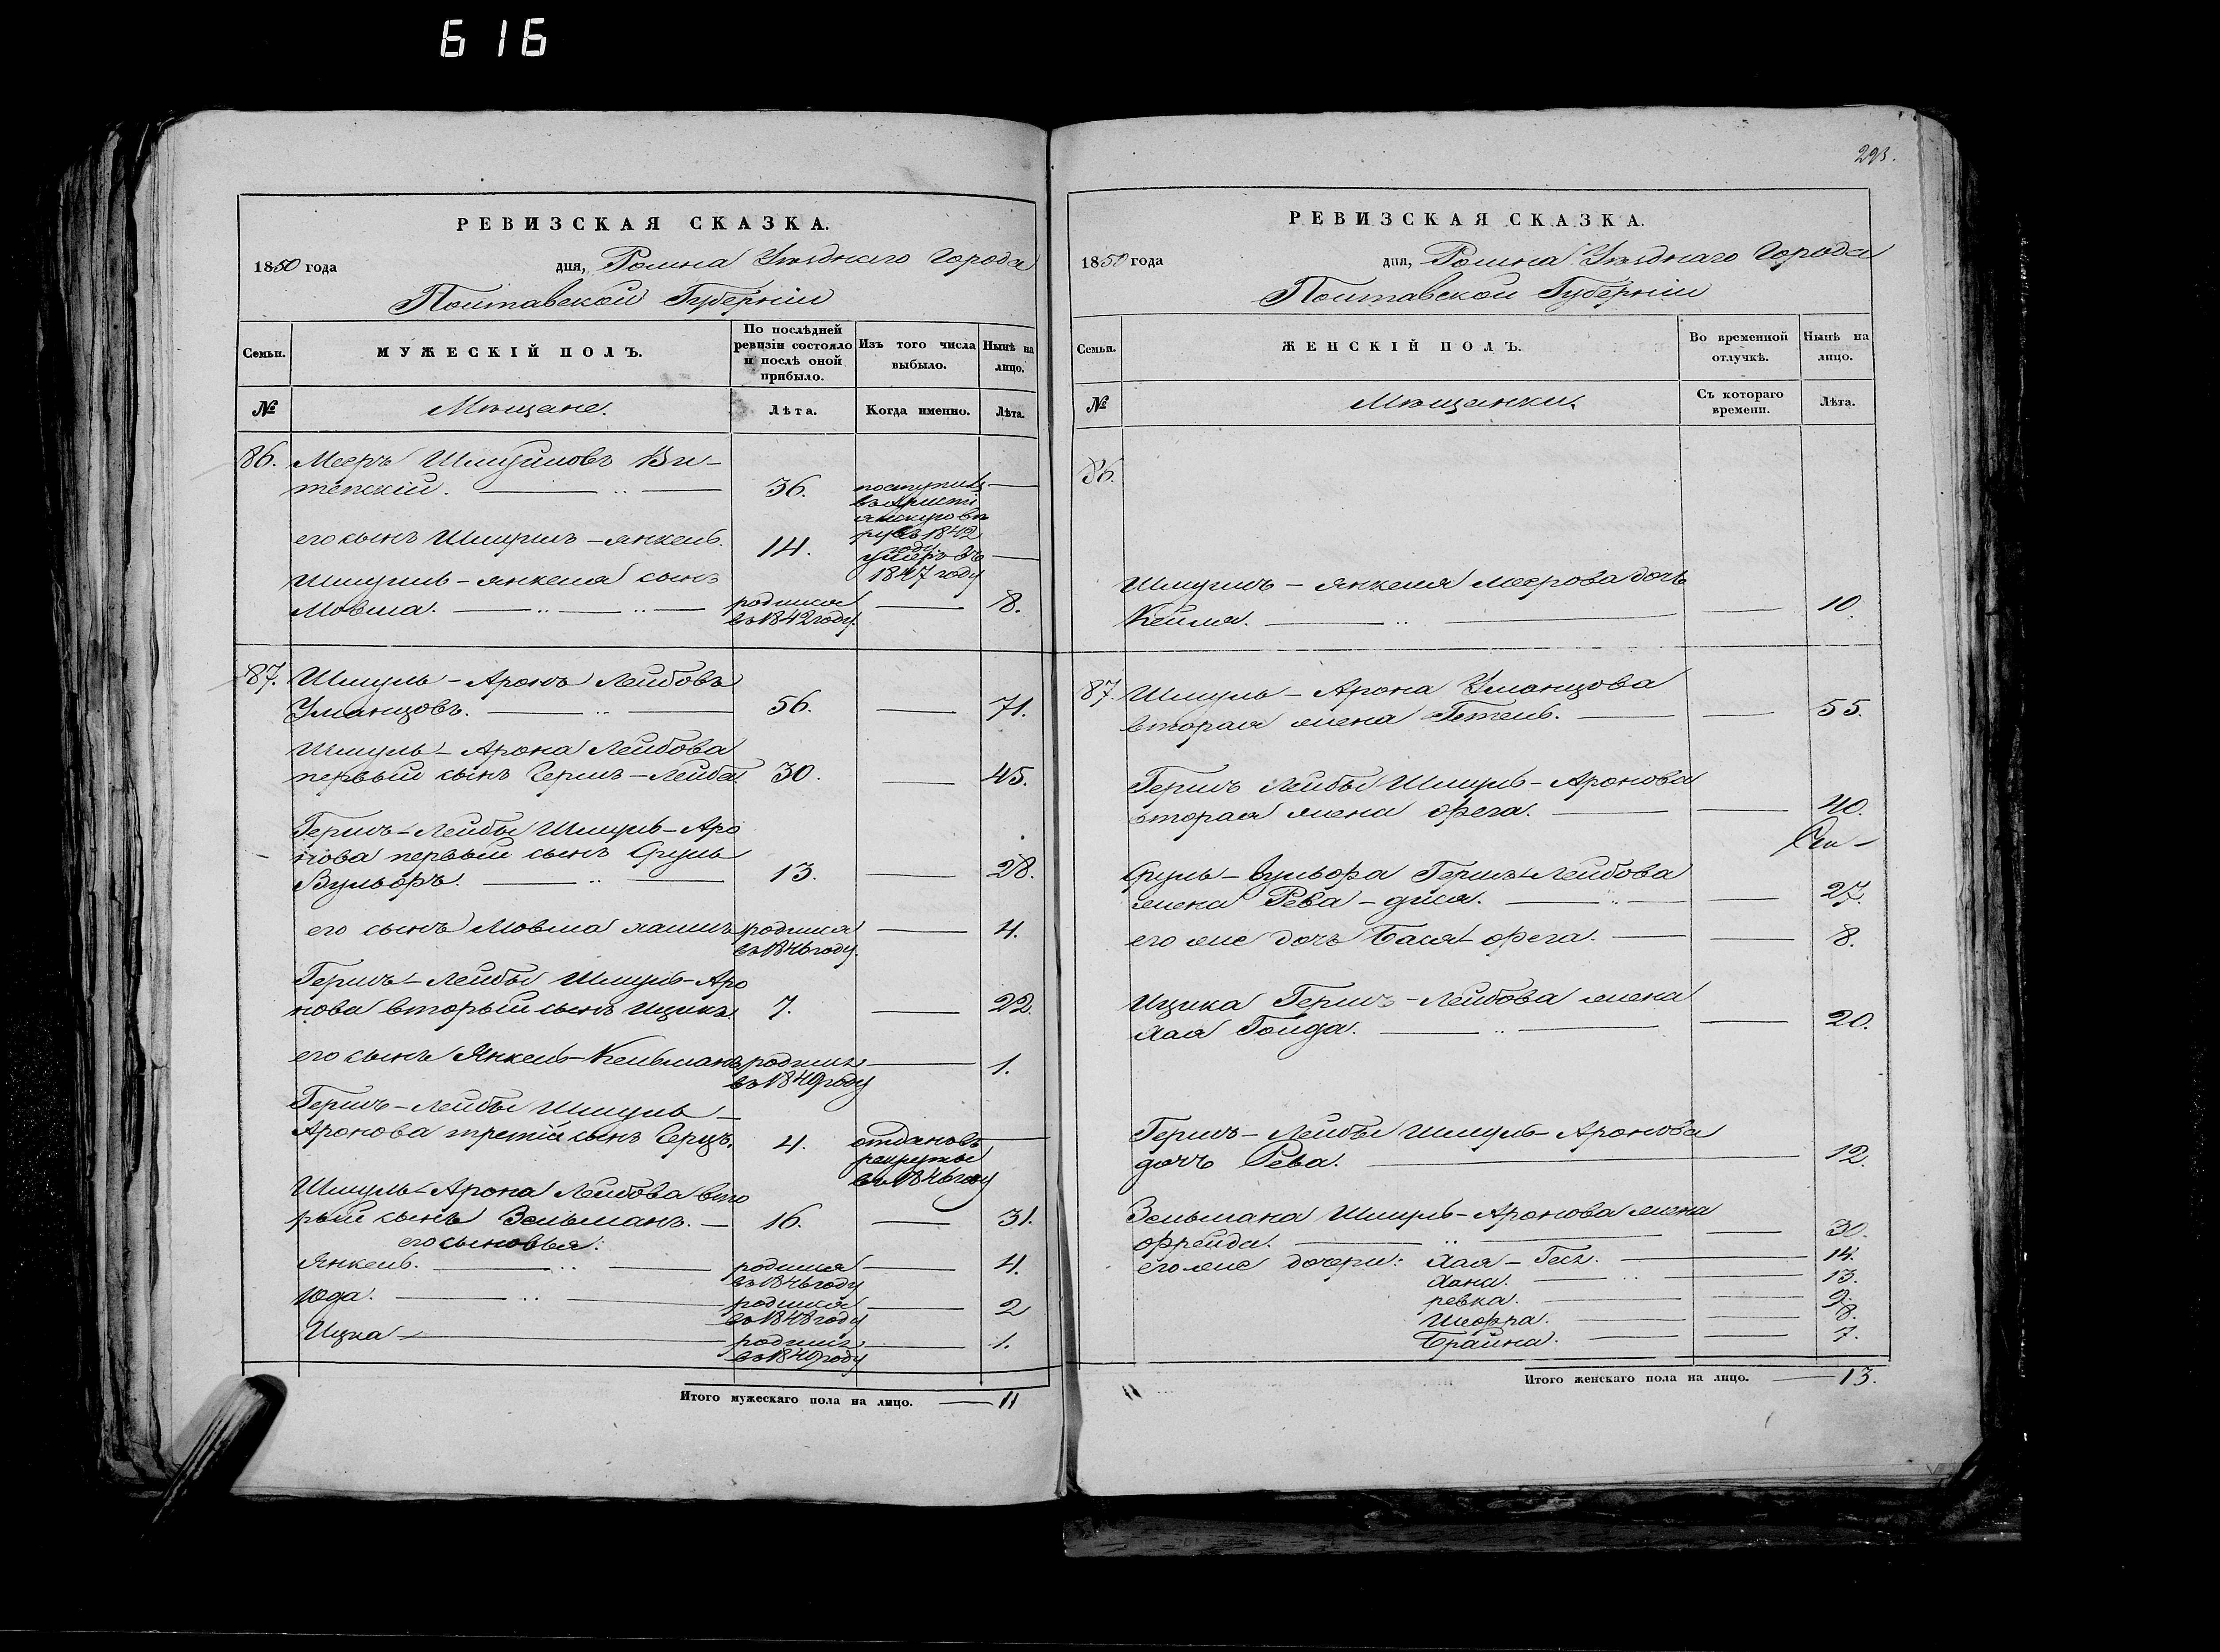 616
РЕВИЗСКАЯ СКАЗКА.
1850 года дня, Ромна Уѣзднаго Города
Полтавской Губерніи
Семьи.
МУЖЕСКІЙ ПОЛЪ.
По послѣдней
ревизіи состояло
и послѣ оной
прибыло.
Изъ того числа
выбыло.
Нынѣ на
лицо.
№
Мѣщане.
Лѣта.
Когда именно.
Лѣта.
86. Мееръ Шмуйловъ Ви-
тепскій. 36. поступилъ
въ
1842
году
его сынъ Шмуиль-Янкель. 14. умеръ въ
1847 году
Шмуиль-Янкеля сынъ
Мовша. родился въ 1842 году 8.
87. Шмуль-Аронъ Лейбовъ
Уманцовъ. 56. 71.
Шмуль-Арона Лейбова
первый сынъ Гершъ-Лейба 30. 45.
Гершъ-Лейбы Шмуль-Аро
нова первый сынъ Сруль
Вульфъ. 13. 28.
его сынъ Мовша родился въ 1846 году. 4.
Гершъ-Лейбы Шмуль-Аро
нова вторый сынъ Ицикъ 7. 22.
его сынъ Янкель-Кельманъ родился въ 1849 году 1.
Гершъ-Лейбы Шмуль-
Аронова третій сынъ Герцъ. 4. отданъ въ
рекруты
въ 1846 году
Шмуль-Арона Лейбова вто
рый сынъ Зельманъ. 16. 31.
его сыновья:
Янкель. родился въ 1846 году 4.
Юда. родился въ 1848 году 2
Ицка родился въ 1849 году 1.
Итого мужескаго пола на лицо. 11
293.
РЕВИЗСКАЯ СКАЗКА.
1850 года дня, Ромна Уѣзднаго Города
Полтавской Губерніи
Семьи.
ЖЕНСКІЙ ПОЛЪ.
Во временной
отлучкѣ.
Нынѣ на
лицо.
№
Мѣщанки.
Съ котораго
времени.
Лѣта.
86.
Шмуиль-Янкеля Меерова дочь
Кейля. 10.
87. Шмуль-Арона Уманцова
вторая жена Гетель. 55.
Гершъ Лейбы Шмуль-Аронова
вторая жена Фега. 40.
Сруль-Вульфа Гершъ-Лейбова
жена Рева-Двся. 27.
его же дочь Бася-Фега. 8.
Ицика Гершъ-Лейбова жена
Хая Гольда. 20.
Гершъ-Лейбы Шмуль-Аронова
дочь Рева. 12.
Зельмана Шмуль-Аронова жена
Фрейда. 30.
его же дочери: Хая-Геся. 14.
Хана. 13.
Ревка. 9.
Шифра. 8.
Брайна. 7.
Итого женскаго пола на лицо. 13.